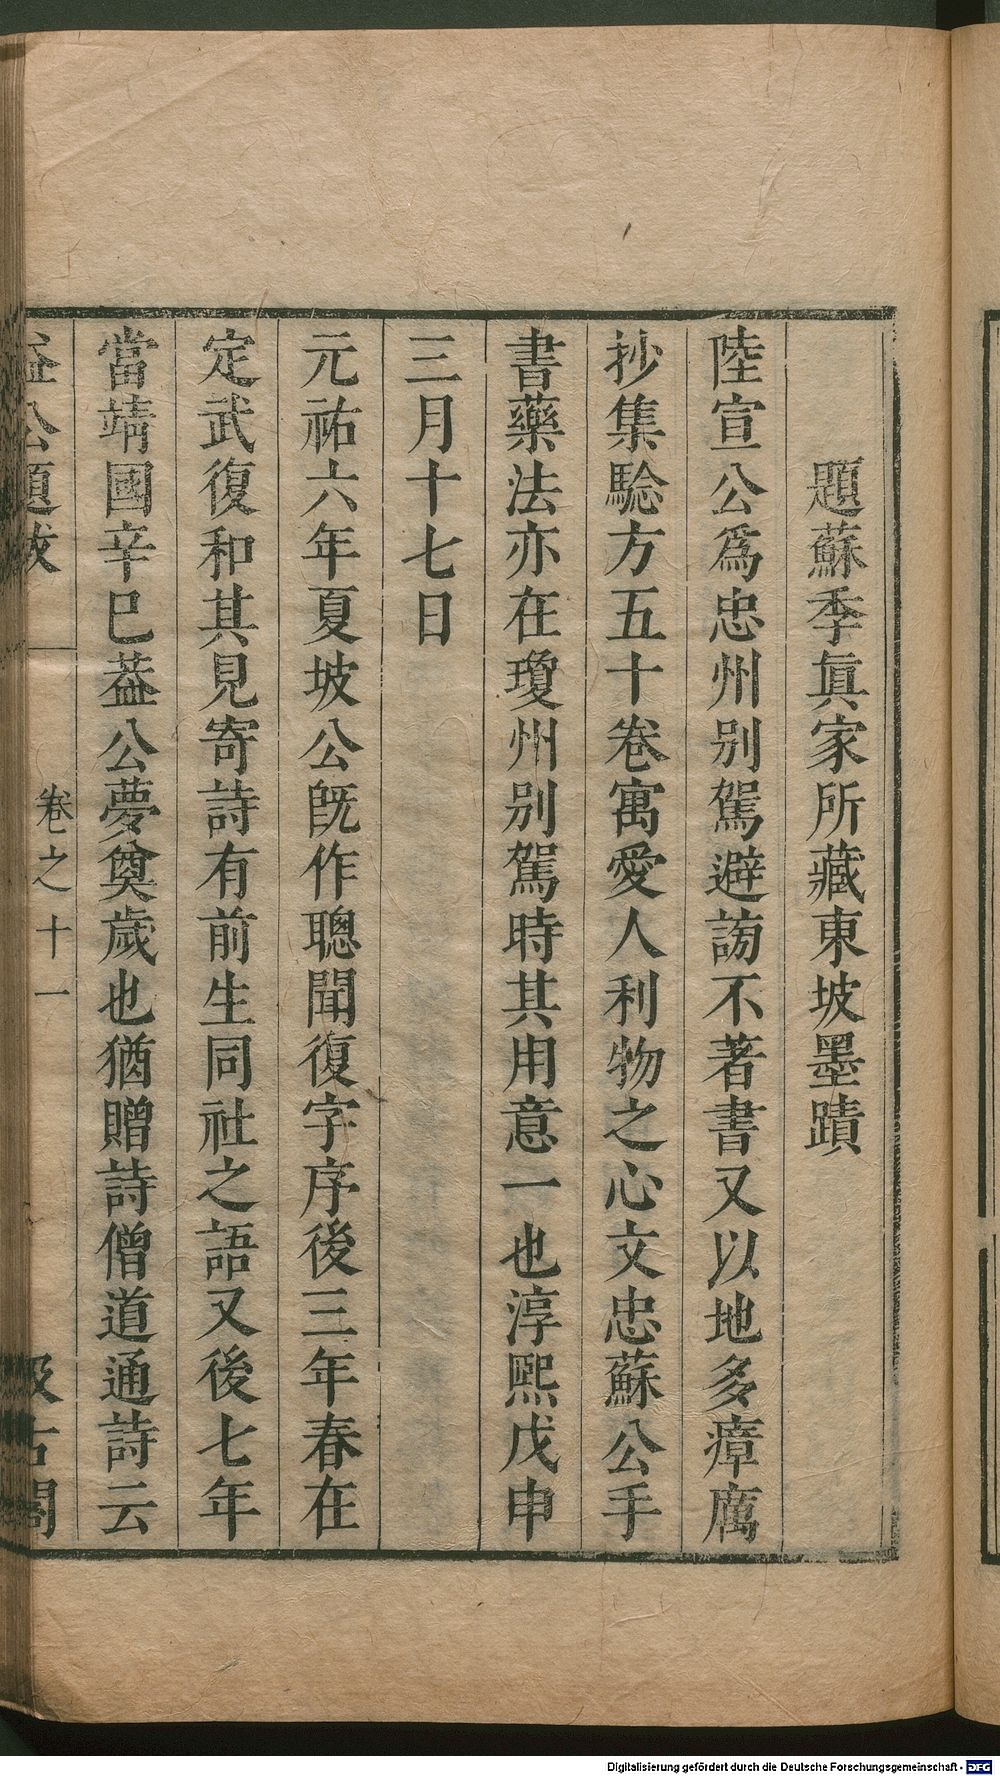 題蘇季眞家所藏東坡墨蹟
陸宣公爲忠州别駕避謗不著書又以地多瘴厲
抄集驗方五十卷寓愛人利物之心文忠蘇公手
書藥法亦在瓊州别駕時其用意一也淳熙戊申
三月十七日
元祐六年夏坡公旣作聰聞復字序後三年春在
定武復和其見寄詩有前生同社之語又後七年
當靖國辛巳葢公夢奠歲也猶贈詩僧道通詩云
益公題跋 卷之十一 汲古閣
Digitalisierung gefördert durch die Deutsche Forschungsgemeinschaft - DFG